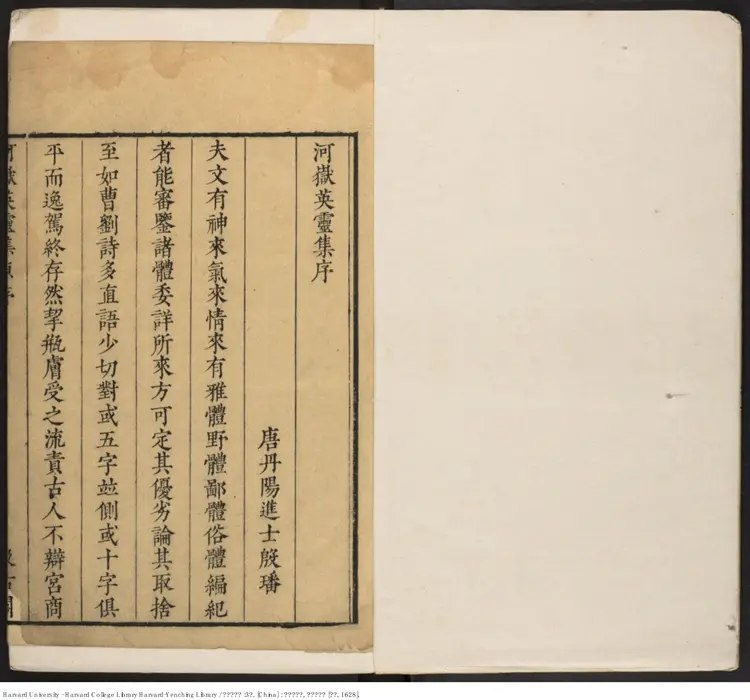 河嶽英靈集序
唐丹陽進士殷璠
夫文有神來氣來情來有雅體野體鄙體俗體編紀
者能審鑒諸體委詳所來方可定其優劣論其取捨
至如曹劉詩多直語少切對或五字竝側或十字俱
平而逸駕終存然挈瓶膚受之流責古人不辯宮商
Harvard University - Harvard College Library Harvard-Yenching Library / ????? :3?. [China] : ?????, ????? [??, 1628].